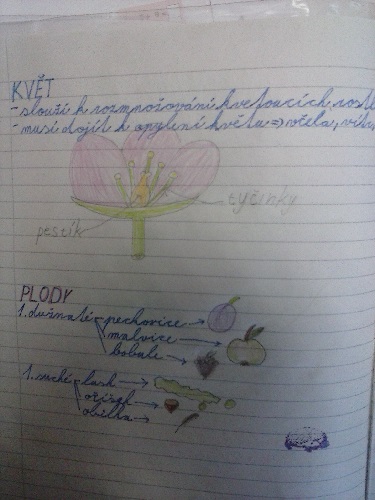 KVĚT
- slouží k rozmnožování kvetoucích rostl
- musí dojít k opylení květu => včela, vítr,
tyčinky
pestík
PLODY
1. dužnaté peckovice →
malvice →
bobule →
1. suché lusk →
oříšek →
obilka →